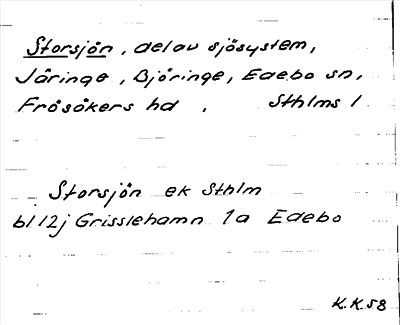 Storsjön, del av sjösystem,
Jåringe, Björinge, Edebo sn,
Frösåkers hd. Sthlms l
Storsjön ek Sthlm
bl 12j Grisslehamn 1a Edebo
K.K.58